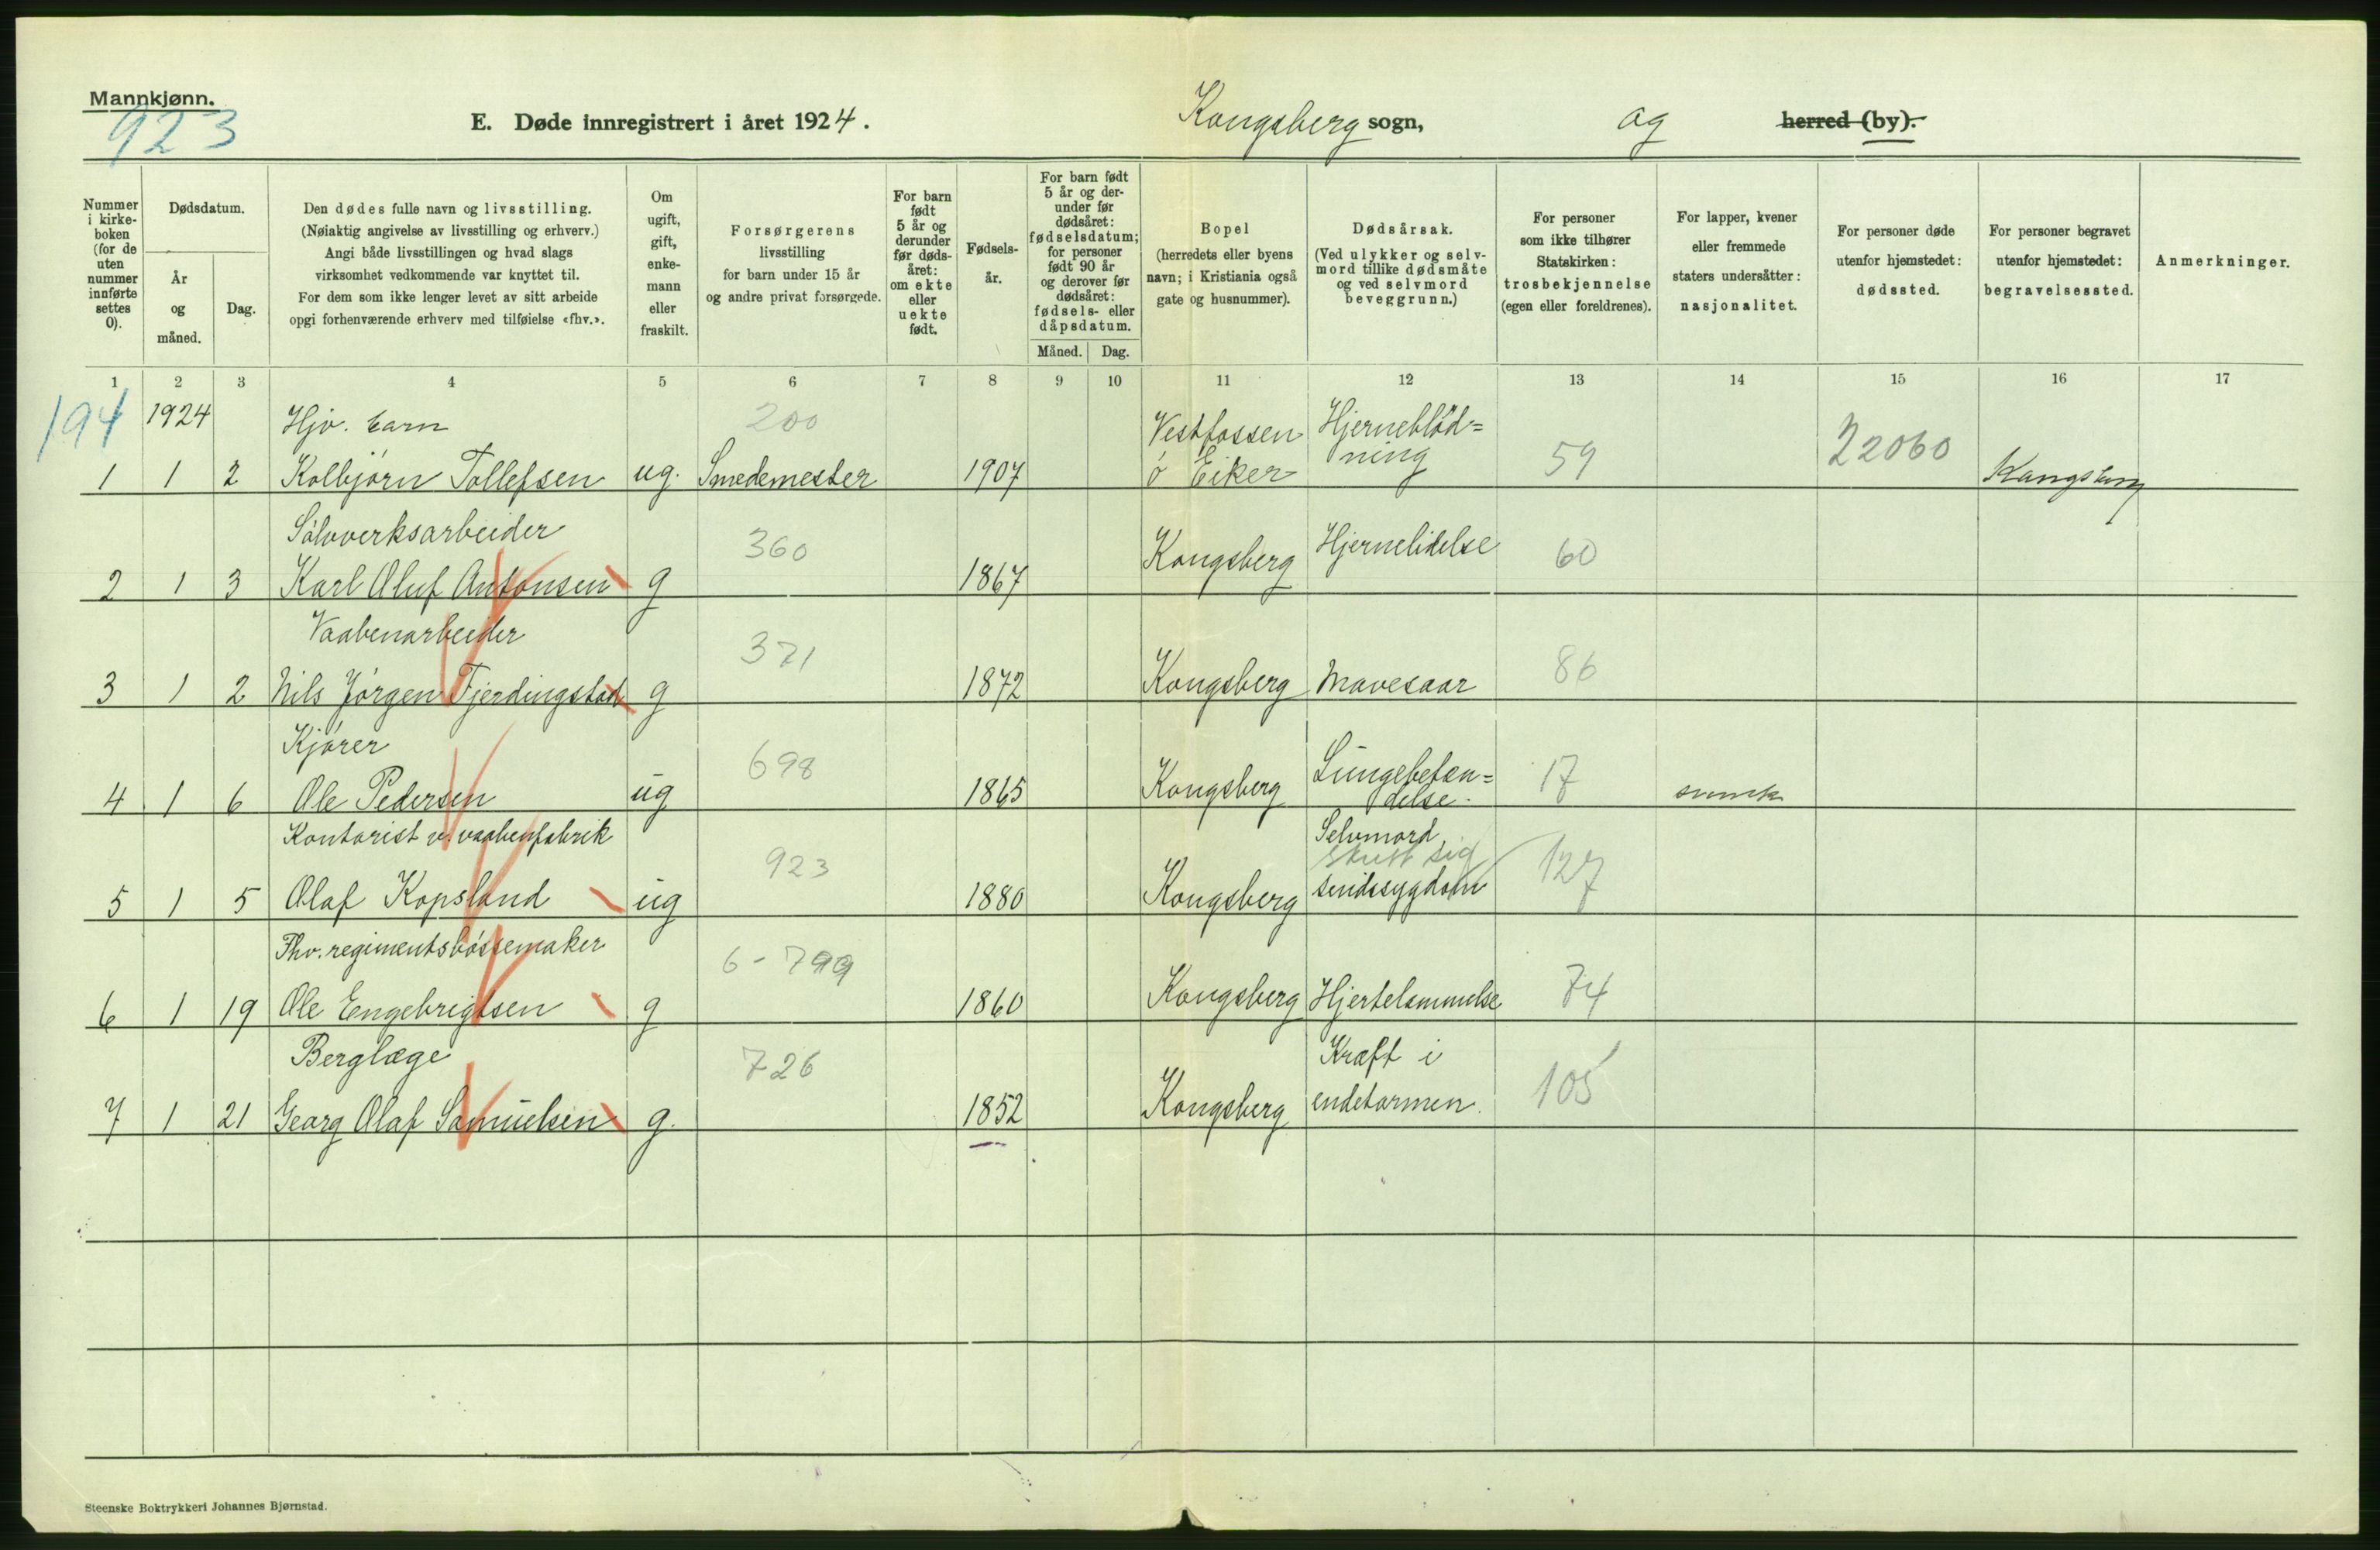 Mannkjønn.
923
E. Døde innregistrert i året 1924.
Kongsberg sogn,
og
herred (by).
Nummer i kirke- boken (for de uten nummer innførte settes 0).
Dødsdatum.
År og måned.
Dag.
Den dødes fulle navn og livsstilling.
(Nøiaktig angivelse av livsstilling og erhverv.)
Angi både livsstillingen og hvad slags
virksomhet vedkommende var knyttet til.
For dem som ikke lenger levet av sitt arbeide
opgi forhenværende erhverv med tilføielse «fhv.».
Om ugift, gift, enke- mann eller fraskilt.
Forsørgerens
livsstilling
for barn under 15 år
og andre privat forsørgede.
For barn født 5 år og derunder før døds- året: om ekte eller uekte født.
Fødsels- år.
For barn født 5 år og der- under før dødsåret: fødselsdatum; for personer født 90 år og derover før dødsåret: fødsels- eller dåpsdatum.
Måned.
Dag.
Bopel
(herredets eller byens
navn; i Kristiania også
gate og husnummer).
Dødsårsak.
(Ved ulykker og selv-
mord tillike dødsmåte
og ved selvmord
beveggrunn.)
For personer
som ikke tilhører
Statskirken:
trosbekjennelse
(egen eller foreldrenes).
For lapper, kvener
eller fremmede
staters undersåtter:
nasjonalitet.
For personer døde
utenfor hjemstedet:
dødssted.
For personer begravet
utenfor hjemstedet:
begravelsessted.
Anmerkninger.
1 2 3 4 5 6 7 8 9 10 11 12 13 14 15 16 17
194 1924 Hjv. barn 200 Vestfossen Hjerneblød=
1 1 2 Kolbjørn Tollefsen ug. Smedemester 1907 ø Eiker ning 59 22060 Kongsberg
Sølvverksarbeider 360
2 1 3 Karl Oluf Antonsen g 1867 Kongsberg Hjernelidelse 60
Vaabenarbeider 371
3 1 2 Nils Jørgen Fjerdingstad g 1872 Kongsberg Mavesaar 86
Kjører 698 Lungebetæn=
4 1 6 Ole Pedersen ug 1865 Kongsberg delse. 17 svensk
Kontorist v. vaabenfabrik 923 Selvmord
skutt sig
5 1 5 Olaf Kopsland ug 1880 Kongsberg sindssygdom 127
Fhv. regimentsbøssemaker 6-799
6 1 19 Ole Engebrigtsen g 1860 Kongsberg Hjertelammelse 74
Berglæge 726 Kræft i
7 1 21 Georg Olaf Samuelsen g. 1852 Kongsberg endetarmen. 105
Steenske Boktrykkeri Johannes Bjørnstad.